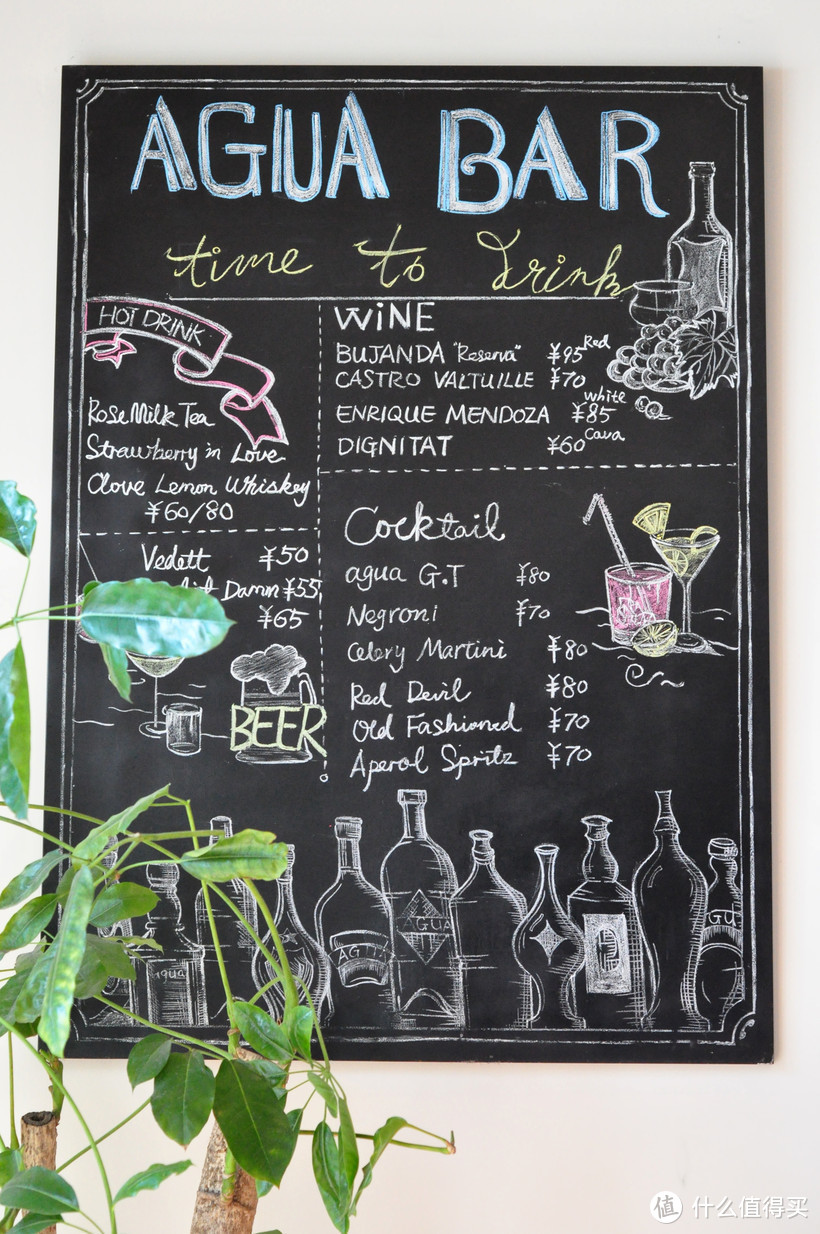 AGUA BAR
time to Drink
HOT DRINK
Rose Milk Tea
Strawberry in Love
Clove Lemon Whiskey
¥60/80
Vedett ¥50
Damm ¥55
¥65
BEER
WiNE
BUJANDA "Reserva" ¥95 Red
CASTRO VALTUILLE ¥70
ENRIQUE MENDOZA ¥85 white
DIGNITAT ¥60 Cava
Cocktail
agua G.T ¥80
Negroni ¥70
Celery Martini ¥80
Red Devil ¥80
Old Fashioned ¥70
Aperol Spritz ¥70
AGUA
agua
值 什么值得买